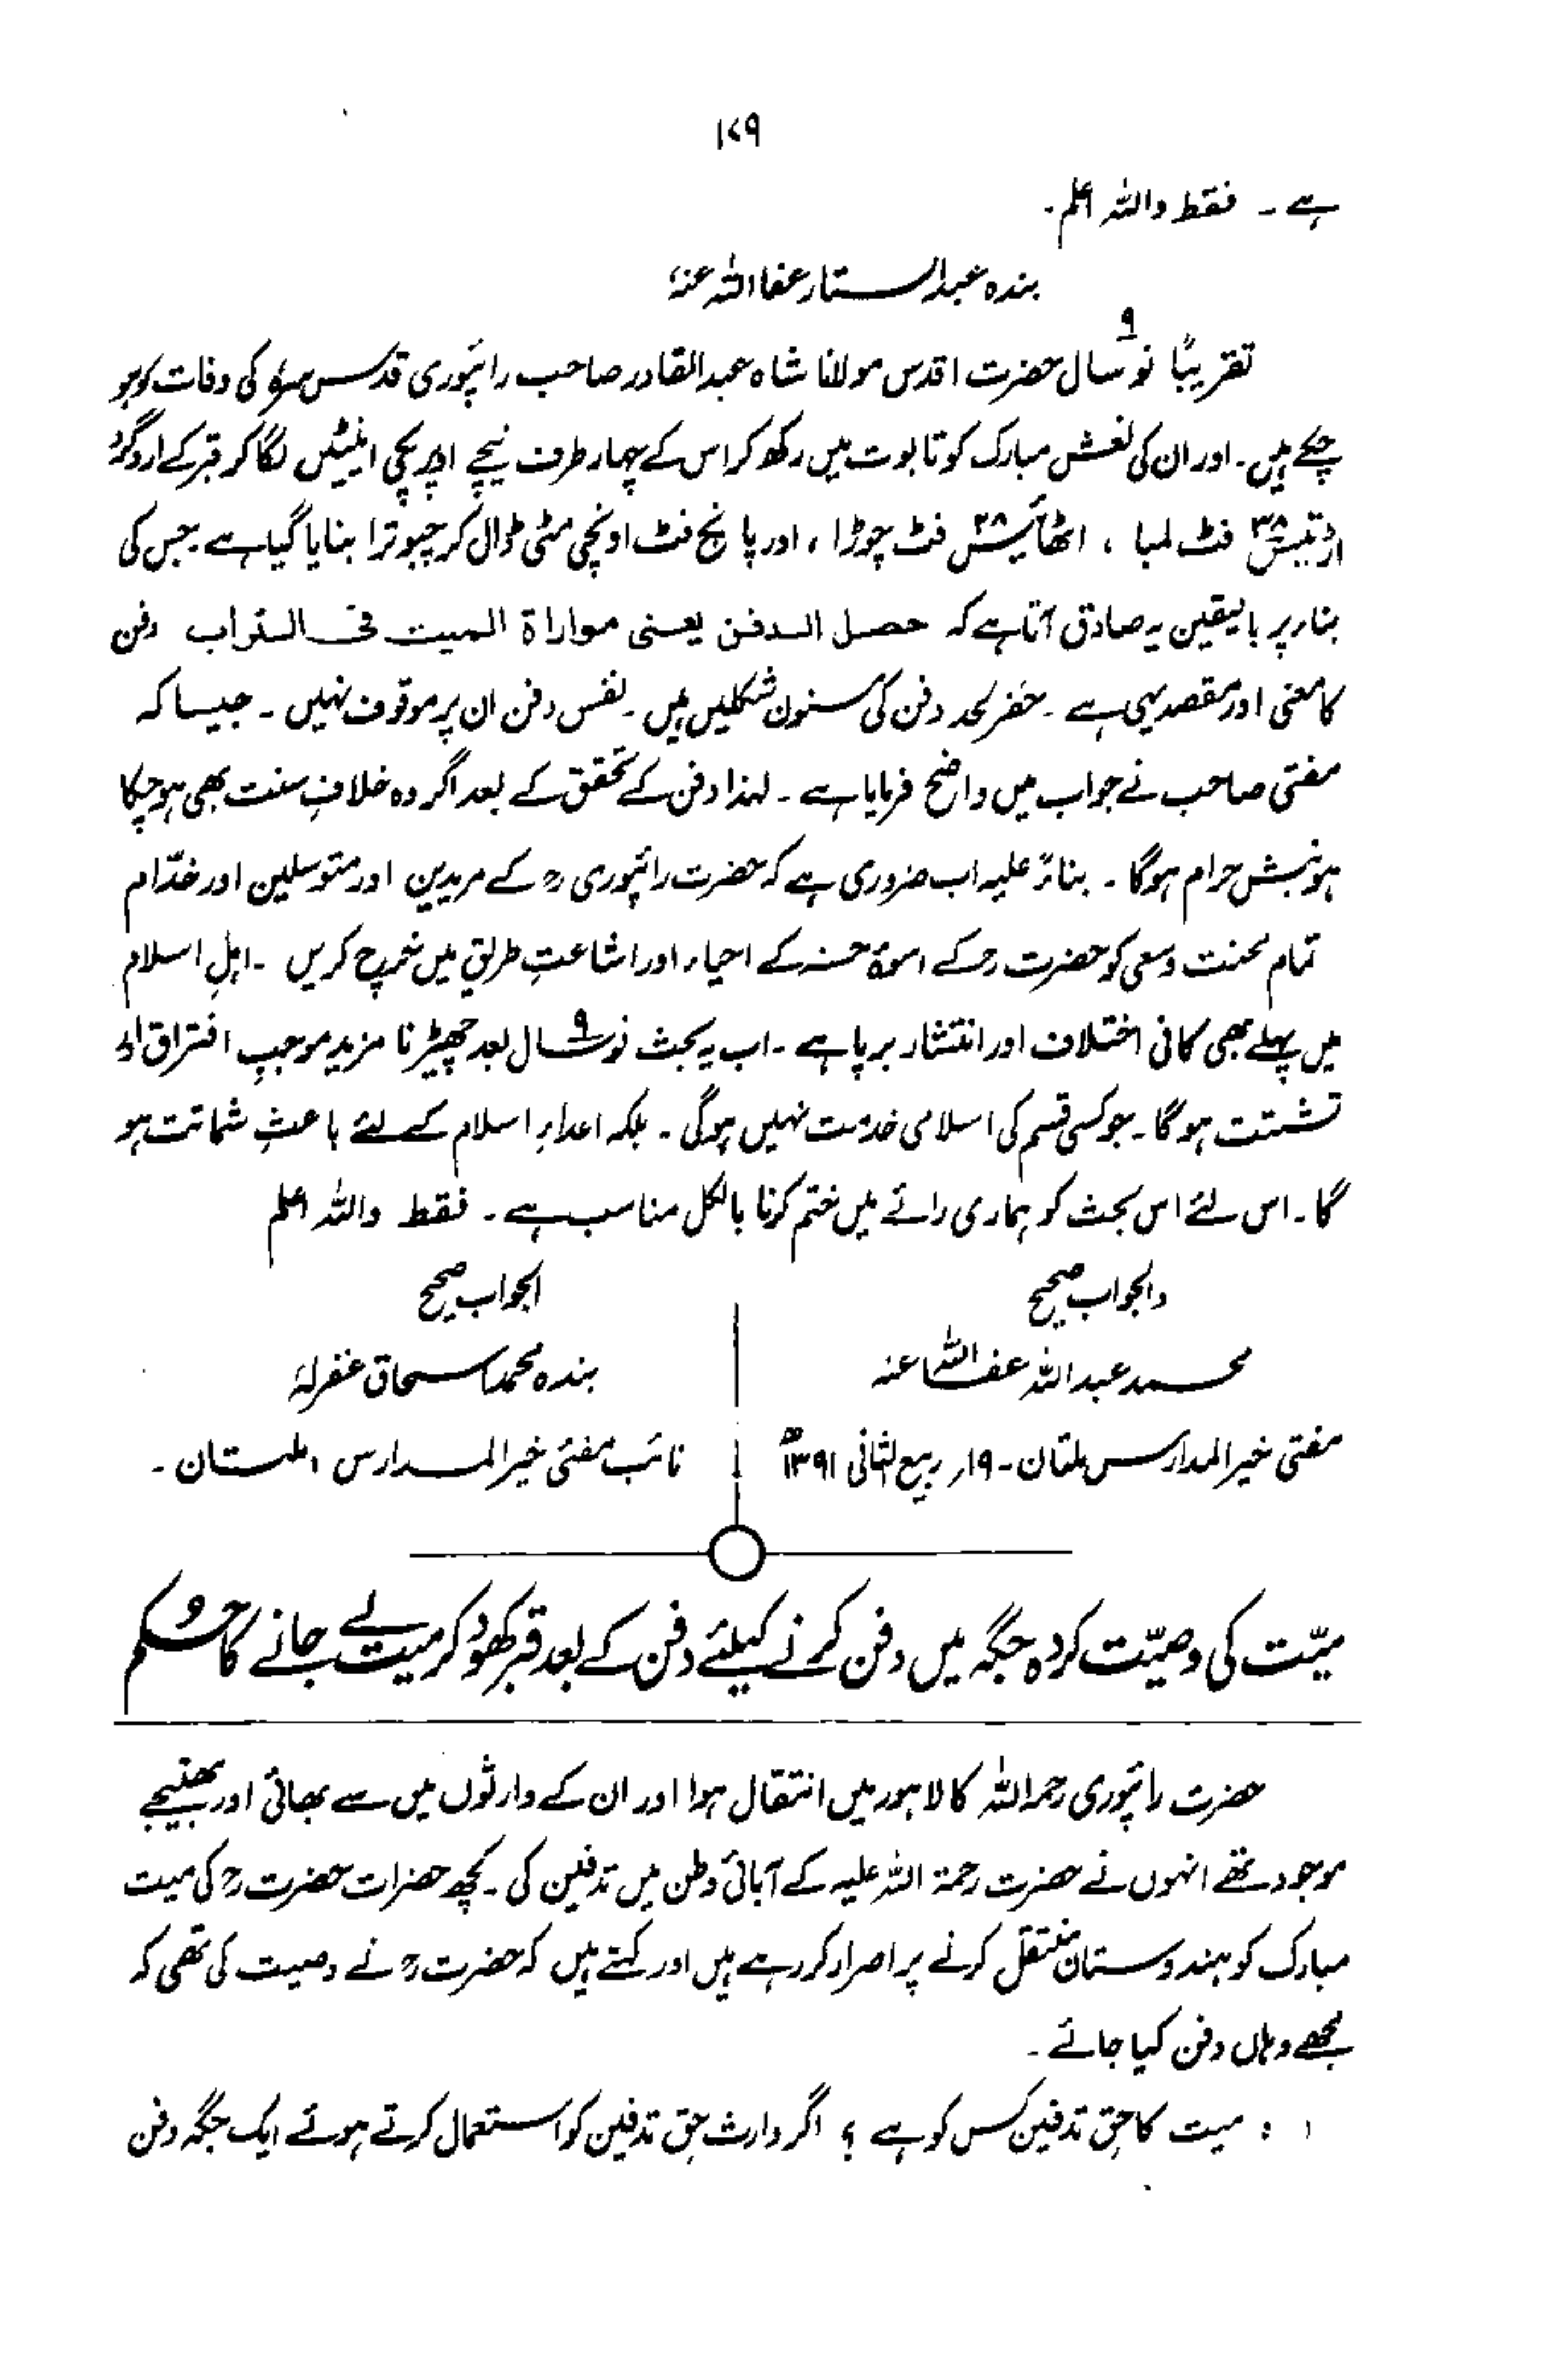 ۱۷۹
ہے ۔ فقط واللہ اعلم ۔
بندہ عبدالستار عفا اللہ عنہٗ
تقریبًا نو۹ سال حضرت اقدس مولانا شاہ عبدالقادر صاحب رائپوری قدس سرہٗ کی وفات کو ہو
چکے ہیں ۔ اور ان کی نعش مبارک کو تابوت میں رکھ کر اس کے چہار طرف نیچے اوپر پکی اینٹیں لگا کر قبر کے اردگرد
اڑتیس۳۸ فٹ لمبا ، اٹھائیس۲۸ فٹ چوڑا ، اور پانچ فٹ اونچی مٹی ڈال کر چبوترا بنایا گیا ہے ۔ جس کی
بناء پر بالیقین یہ صادق آتا ہے کہ حصل الدفن یعنی مواراۃ المیت فی التراب دفن
کا معنی اور مقصد یہی ہے ۔ حفر لحد دفن کی مسنون شکلیں ہیں ۔ نفس دفن ان پر موقوف نہیں ۔ جیسا کہ
مفتی صاحب نے جواب میں واضح فرمایا ہے ۔ لہذا دفن کے تحقق کے بعد اگر وہ خلافِ سنت بھی ہو چکا
ہو نبش حرام ہوگا ۔ بناءً علیہ اب ضروری ہے کہ حضرت رائپوری رح کے مریدین اور متوسلین اور خدّام
تمام محنت و سعی کو حضرت رح کے اسوۂ حسنہ کے احیاء اور اشاعتِ طریق میں خرچ کریں ۔ اہلِ اسلام
میں پہلے بھی کافی اختلاف اور انتشار برپا ہے ۔ اب یہ بحث نو۹ سال بعد چھیڑنا مزید موجبِ افتراق اور
تشتت ہوگا ۔ جو کسی قسم کی اسلامی خدمت نہیں ہوگی ۔ بلکہ اعداءِ اسلام کے لئے باعثِ شماتت ہو
گا ۔ اس لئے اس بحث کو ہماری رائے میں ختم کرنا بالکل مناسب ہے ۔ فقط واللہ اعلم
والجواب صحیح
محمد عبداللہ عفا اللہ عنہ
مفتی خیر المدارس ملتان ۔ ۱۹؍ ربیع الثانی ۱۳۹۱ھ
الجواب صحیح
بندہ محمد اسحاق غفرلہٗ
نائب مفتی خیر المدارس ، ملتان ۔
میّت کی وصیّت کردہ جگہ میں دفن کرنے کیلئے دفن کے بعد قبر کھود کر میت لے جانے کا حکم
حضرت رائپوری رحمہ اللہ کا لاہور میں انتقال ہوا اور ان کے وارثوں میں سے بھائی اور بھتیجے
موجود تھے انہوں نے حضرت رحمۃ اللہ علیہ کے آبائی وطن میں تدفین کی ۔ کچھ حضرات حضرت رح کی میت
مبارک کو ہندوستان منتقل کرنے پر اصرار کر رہے ہیں اور کہتے ہیں کہ حضرت رح نے وصیت کی تھی کہ
مجھے وہاں دفن کیا جائے ۔
۱ : میت کا حقِ تدفین کس کو ہے ؟ اگر وارث حقِ تدفین کو استعمال کرتے ہوئے ایک جگہ دفن